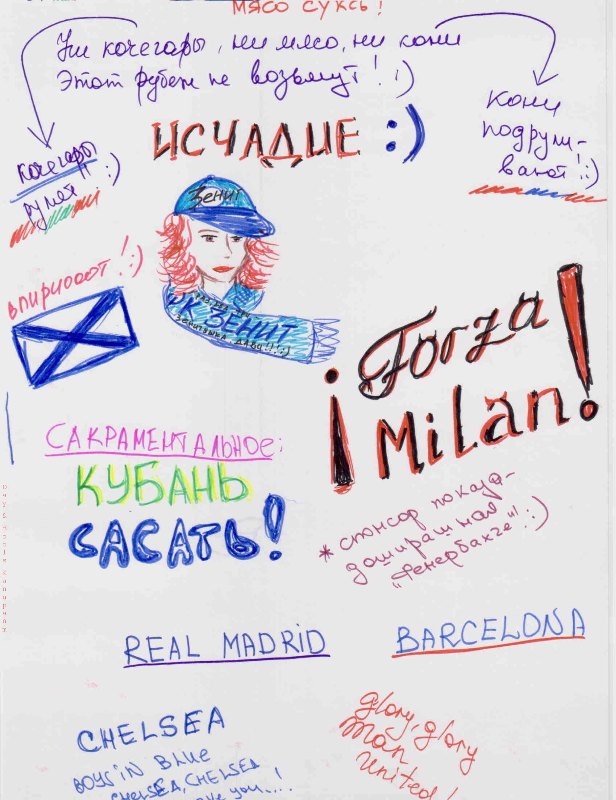 МЯСО СУКСЬ!
Ни кочегары, ни мясо, ни кони
Этот рубеж не возьмут! :)
Кони
подрули-
вают! :)
кочегары
рулят!! :)
ИСЧАДИЕ :)
Зенит
впириооот! :)
ФК ЗЕНИТ
¡Forza
Milan!
САКРАМЕНТАЛЬНОЕ:
КУБАНЬ
САСАТЬ!
* спонсор показа-
доширашная
"Фенербахче"! :)
REAL MADRID
BARCELONA
CHELSEA
BOYS IN BLUE
CHELSEA, CHELSEA
love you...!
glory, glory
man
united!